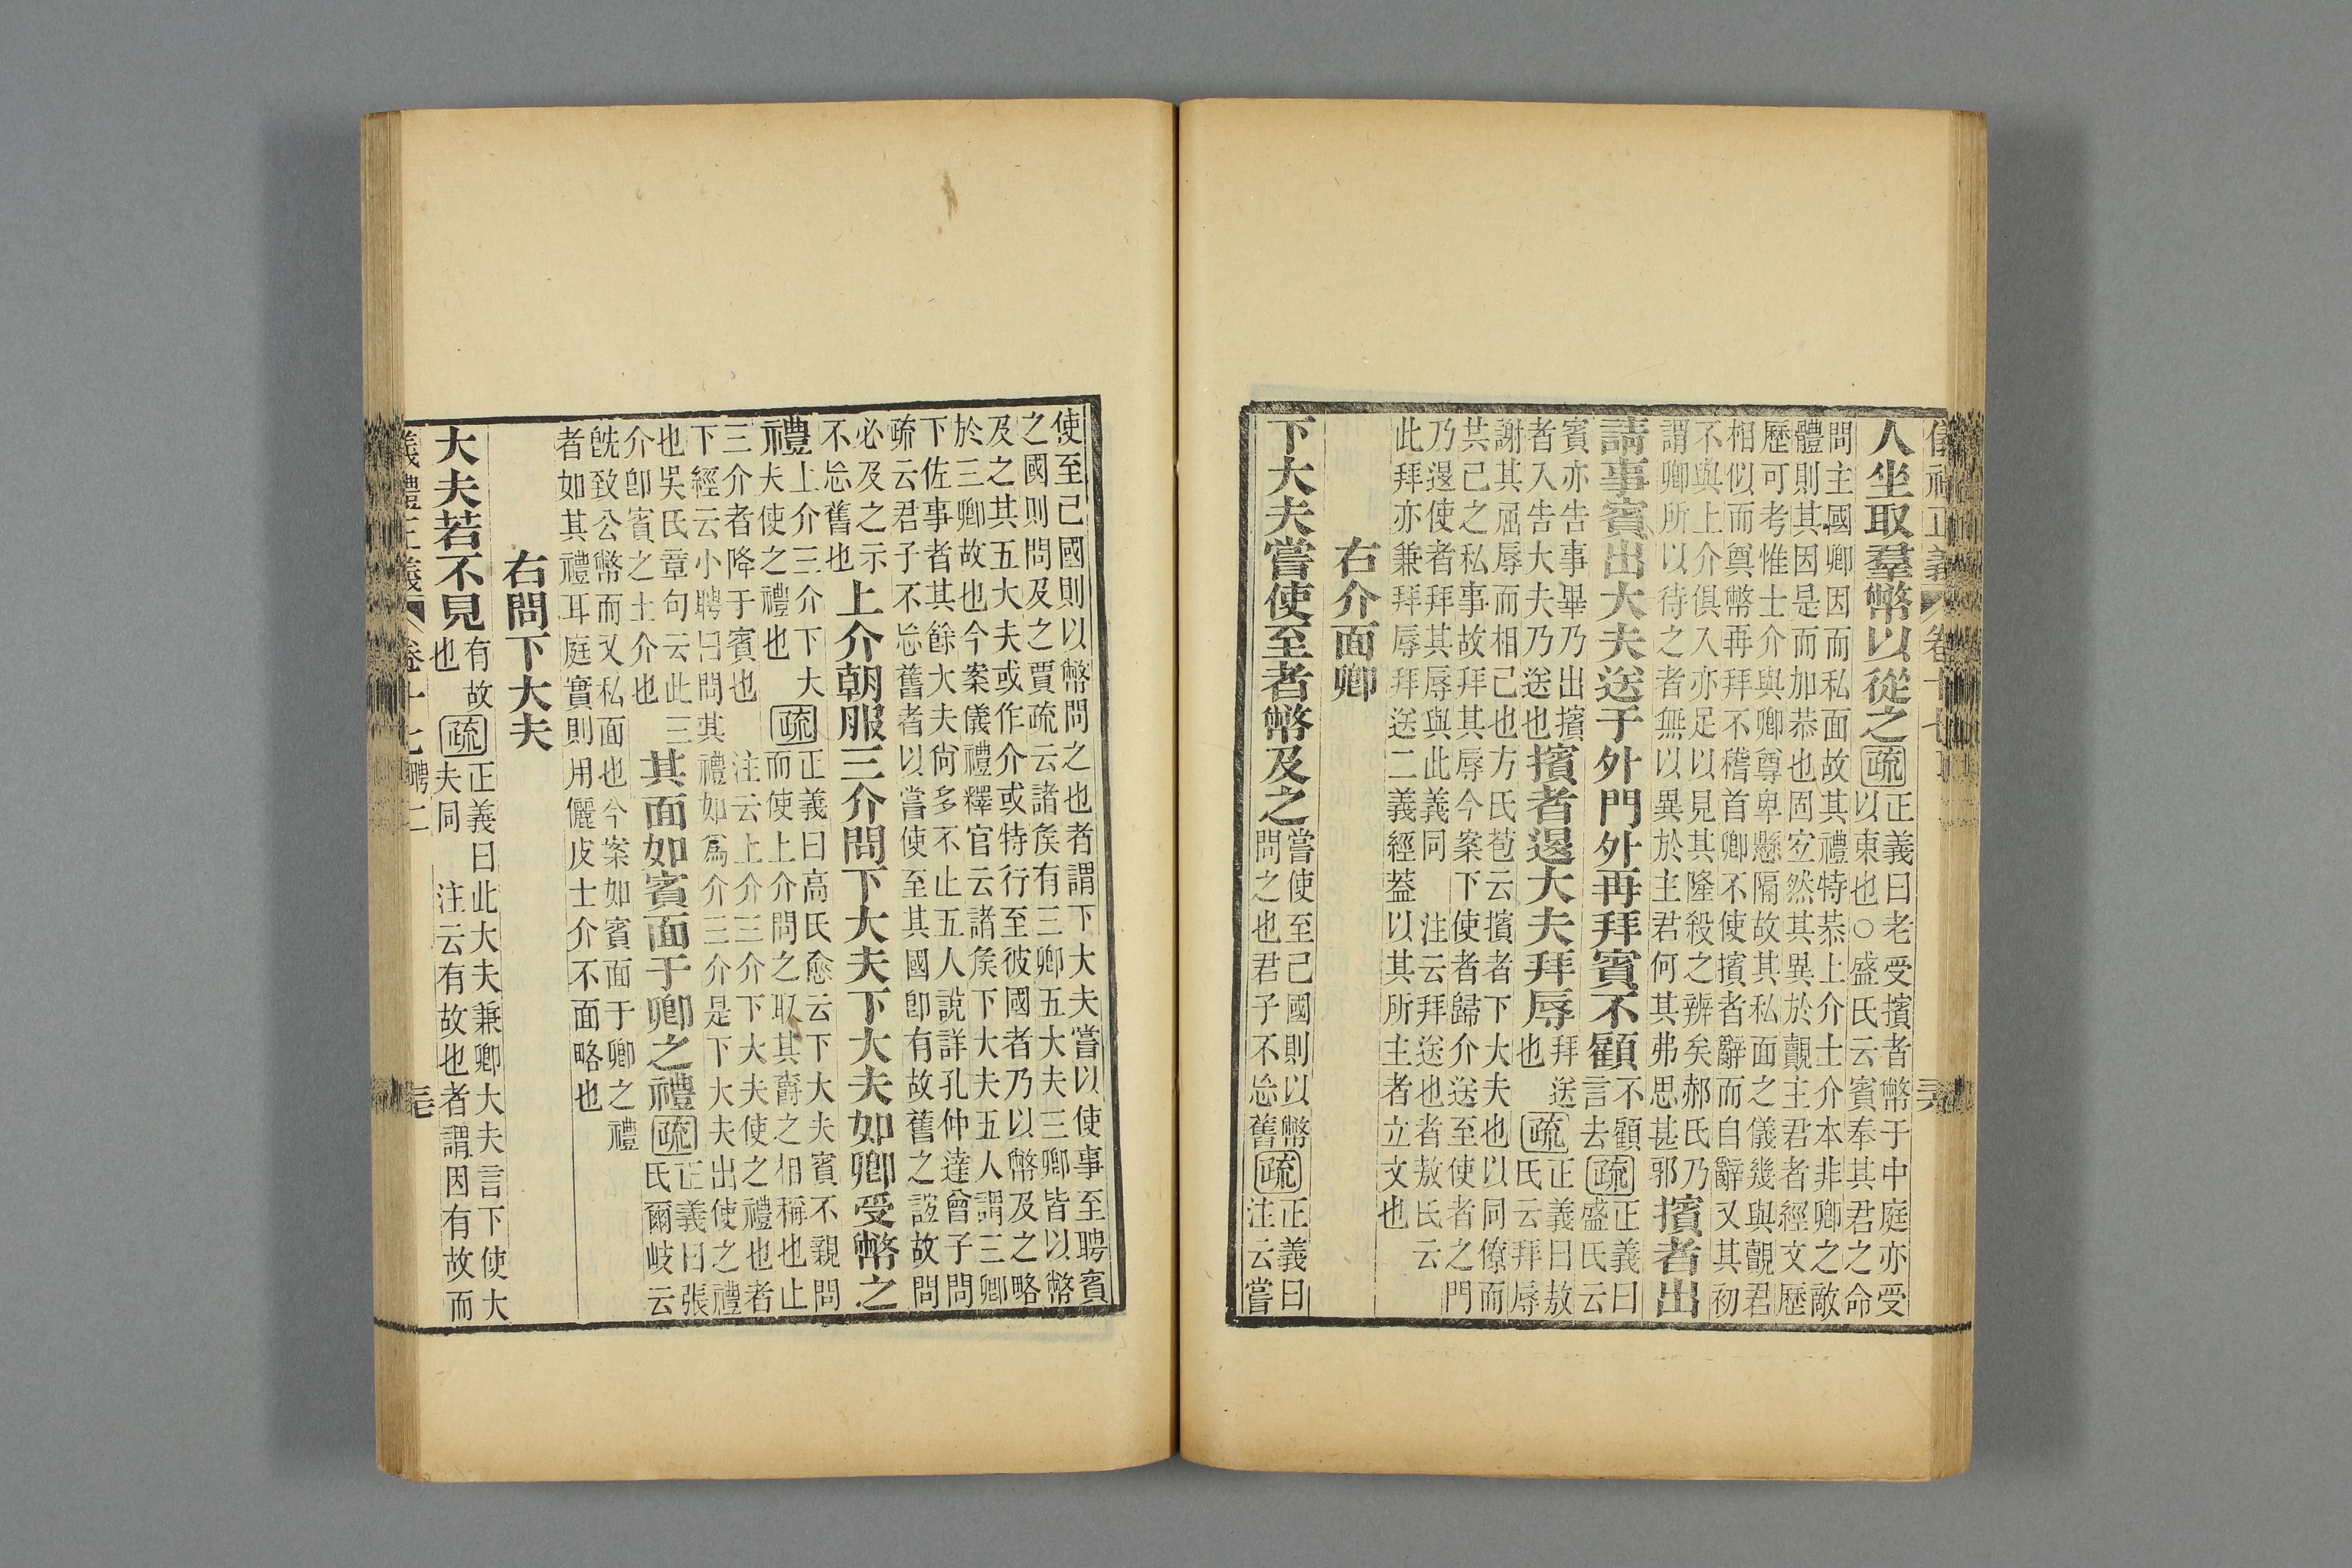 儀禮正義 卷十七
人坐取羣幣以從之 疏 正義曰老受擯者幣于中庭亦受
以東也○盛氏云賓奉其君之命
問主國卿因而私面故其禮特恭上介士介本非卿之敵
體則其因是而加恭也固宜然其異於覿主君者經文歷
歷可考惟士介與卿尊卑懸隔故其私面之儀幾與覿君
相似而奠幣再拜不稽首卿不使擯者辭而自辭又其初
不與上介俱入亦足以見其隆殺之辨矣郝氏乃
謂卿所以待之者無以異於主君何其弗思甚邪 擯者出
請事賓出大夫送于外門外再拜賓不顧 不顧
言去 疏 正義曰
盛氏云
賓亦告事畢乃出擯
者入告大夫乃送也 擯者退大夫拜辱 拜送
也 疏 正義曰敖
氏云拜辱
謝其屈辱而相己也方氏苞云擯者下大夫也以同僚而
共己之私事故拜其辱今案下使者歸介送至使者之門
乃退使者拜其辱與此義同 注云拜送也者敖氏云
此拜亦兼拜辱拜送二義經蓋以其所主者立文也
右介面卿
下大夫嘗使至者幣及之 嘗使至己國則以幣
問之也君子不忘舊 疏 正義曰
注云嘗
使至己國則以幣問之也者謂下大夫嘗以使事至聘賓
之國則問及之賈疏云諸矦有三卿五大夫三卿皆以幣
及之其五大夫或作介或特行至彼國者乃以幣及之略
於三卿故也今案儀禮釋官云諸矦下大夫五人謂三卿
下佐事者其餘大夫尙多不止五人說詳孔仲達曾子問
疏云君子不忘舊者以嘗使至其國卽有故舊之誼故問
必及之示
不忘舊也 上介朝服三介問下大夫下大夫如卿受幣之
禮 上介三介下大
夫使之禮也 疏 正義曰高氏愈云下大夫賓不親問
而使上介問之取其爵之相稱也止
三介者降于賓也 注云上介三介下大夫使之禮也者
下經云小聘曰問其禮如爲介三介是下大夫出使之禮
也吳氏章句云此三
介卽賓之士介也 其面如賓面于卿之禮 疏 正義曰張
氏爾岐云
旣致公幣而又私面也今案如賓面于卿之禮
者如其禮耳庭實則用儷皮士介不面略也
右問下大夫
大夫若不見 有故
也 疏 正義曰此大夫兼卿大夫言下使大
夫同 注云有故也者謂因有故而
儀禮正義 卷十七 聘二